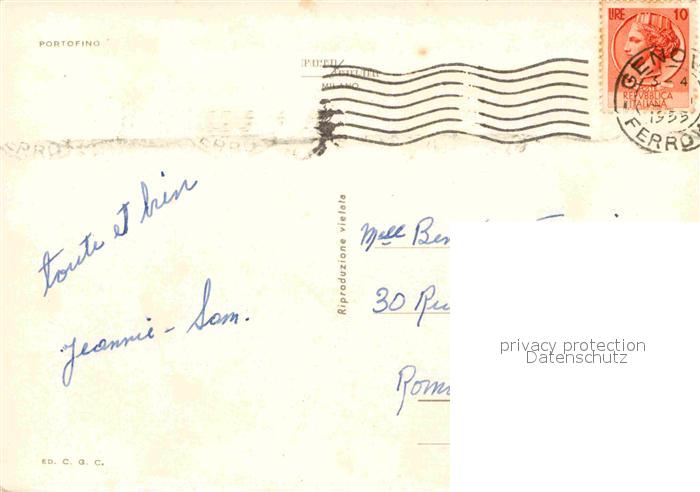 PORTOFINO
MILANO
LIRE 10
POSTE
REPVBBLICA
ITALIANA
GENOV
3-4
1955
FERROV
toute et bien
Jeannie - Sam.
Riproduzione vietata
Mell Ben
30 Ru
Rom
privacy protection
Datenschutz
ED. C. G. C.